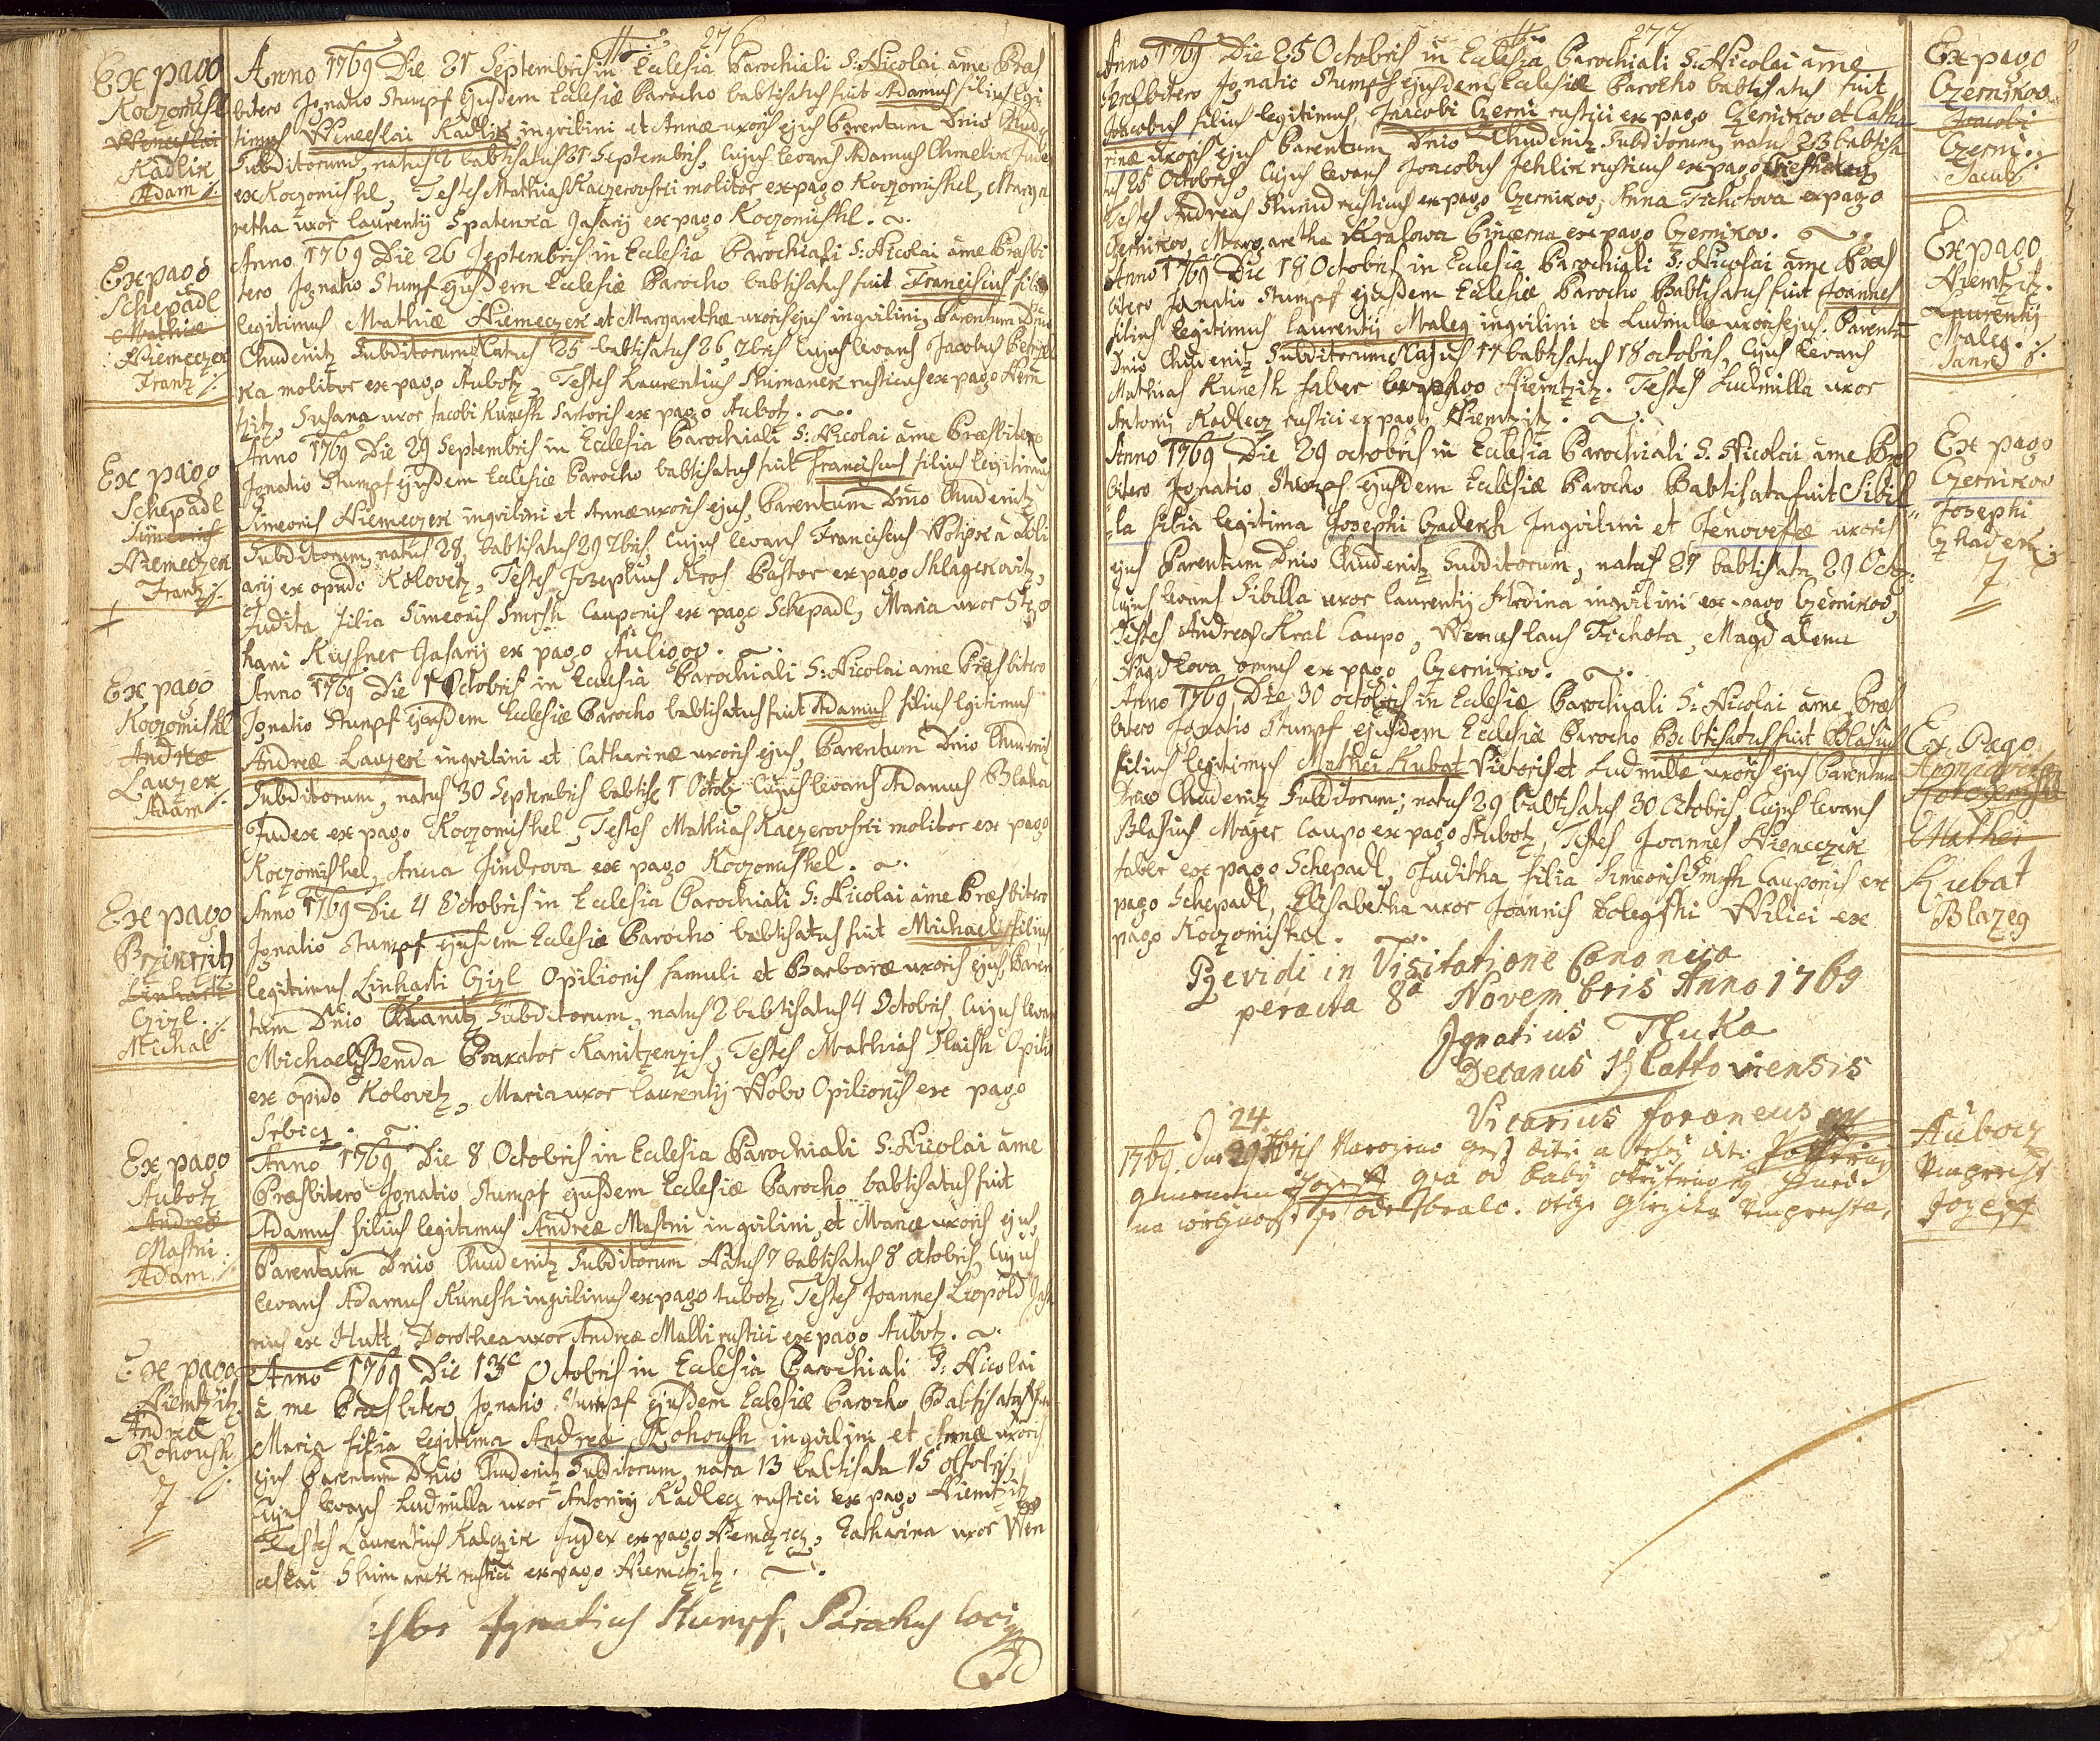 276
Ex pago
Koczomischl
Wenceslai
Kadlik
Adam
Anno 1769 Die 21 Septembris in Ecclesia Parochiali S: Nicolai a me Præs
bitero Ignatio Stumpf ejusdem Ecclesiæ Parocho babtisatus fuit Adamus filius legi
timus Wenceslai Kadlik inqvilini et Annæ uxoris ejus Parentum Dnio Chude
Subditorum, natus babtisatus 21 Septembris, Cujus levans Adamus Chmelik Jude
ex Koczomischl, Testes Mathias Kaczerovski molitor ex pago Koczomischl, Marga
retha uxor Laurentij Spatenka Jasarij ex pago Koczomischl.
Ex pago
Schepadl
Mathiæ
Niemeczek
Frantz
Anno 1769 Die 26 Septembris in Ecclesia Parochiali S: Nicolai a me Præsbi
tero Ignatio Stumf ejusdem Ecclesiæ Parocho babtisatus fuit Franciscus filius
legitimus Mathiæ Niemeczek et Margarethæ uxoris ejus inqvilini, Parentum Dnio
Chudenitz Subditorum Natus 25 babtisatus 26 7bris Cujus levans Jacobus
ka molitor ex pago Aubotz, Testes Laurentius Shimanek rusticus ex pago Niem
tzitz, Susana uxor Jacobi Kunesh Sartoris ex pago Aubotz.
Ex pago
Schepadl
Simeonis
Niemeczek
Frantz
Anno 1769 Die 29 Septembris in Ecclesia Parochiali S: Nicolai a me Præsbitero
Ignatio Stumpf ejusdem Ecclesiæ Parocho babtisatus fuit Franciscus filius legitimus
Simeonis Niemeczek inqvilini et Annæ uxoris ejus, Parentum Dnio Chudenitz
Subditorum, natus 28, babtisatus 29 7bris, Cujus levans Franciscus Wotipka
arij ex opido Kolovetz, Testes Josephus Kros Pastor ex pago Shlagekovitz,
Judita filia Simeonis Smrsh Cauponis ex pago Schepadl, Maria uxor
hani Kuffner Jasarij ex pago Auligov.
Ex pago
Koczomischl
Andreæ
Lauzek
Adam
Anno 1769 Die 1 Octobris in Ecclesia Parochiali S: Nicolai a me Præsbitero
Ignatio Stumpf ejusdem Ecclesiæ Parocho babtisatus fuit Adamus filius legitimus
Andreæ Lauzek inqvilini et Catharinæ uxoris ejus, Parentum Dnio Chudenitz
Subditorum, natus 30 Septembris babtis 1 Octob Cujus levans Adamus Blaha
Judex ex pago Koczomischel, Testes Mathias Kaczerovski molitor ex pago
Koczomischel, Anna Jindrova ex pago Koczomischel.
Ex pago
Linharti
Czizl
Michal
Anno 1769 Die 4 Octobris in Ecclesia Parochiali S: Nicolai a me Præsbitero
Ignatio Stumpf ejusdem Ecclesiæ Parocho babtisatus fuit Michael filius
legitimus Linharti Czizl Opilionis famuli et Barbaræ uxoris ejus, Paren
tum Dnio Kanitz Subditorum, natus 2 babtisatus 4 Octobris, Cujus levans
Michael Benda Braxator Kanitzenzis, Testes Mathias Opilio
ex opido Kolovetz, Maria uxor Laurentij Opilionis ex pago
Srbicz.
Ex pago
Aubotz
Andreæ
Mastni
Adam
Anno 1769 Die 8 Octobris in Ecclesia Parochiali S: Nicolai a me
Præsbitero Ignatio Stumpf ejusdem Ecclesiæ Parocho babtisatus fuit
Adamus filius legitimus Andreæ Mastni inqvilini, et Mariæ uxoris ejus,
Parentum Dnio Chudenitz Subditorum Natus 7 babtisatus 8 octobris, Cujus
levans Adamus Kunesh inqvilinus ex pago tubotz, Testes Joannes Leopold Jasa
rius ex Hutt, Dorothea uxor Andreæ Malli rustici ex pago Aubotz.
Ex pago
Niemtzitz
Andreæ
Kohoush
7
Anno 1769 Die 15 Octobris in Ecclesia Parochiali S: Nicolai
a me Præsbitero Ignatio Stumpf ejusdem Ecclesiæ Parocho Babtisata fuit
Maria filia legitima Andreæ Kohoush inqvilini et Annæ uxoris
ejus Parentum Dnio Chudenitz Subditorum, nata 13 babtisata 15 octobris,
Cujus levans Ludmilla uxor Antonij Kadlecz rustici ex pago Niemtzitz,
Testes Laurentius Kalczik Judex ex pago Niemczicz, Catharina uxor Wen
ceslai Shimanek rustici ex pago Niemtzitz.
Ignatius Stumpf, Parochus loci
277
Anno 1769 Die 25 Octobris in Ecclesia Parochiali S: Nicolai a me
Præsbitero Ignatio Stumpf ejusdem Ecclesiæ Parocho babtisatus fuit
Jacobus filius legitimus, Jacobi Czerni rustici ex pago Czernikov et Catha
rinæ uxoris ejus Parentum Dnio Chudenitz Subditorum, natus 23 babtisa
tus 25 Octobris, Cujus levans Jacobus Jehlik rusticus ex pago
Testes Andreas rusticus ex pago Czernikov, Anna Tichotova ex pago
Czernikov, Margaretha Kralowa ex pago Czernikov.
Ex pago
Czernikov
Jacobi
Czerni
Jacub
Anno 1769 Die 18 Octobris in Ecclesia Parochiali S: Nicolai a me Præs
bitero Ignatio Stumpf ejusdem Ecclesiæ Parocho Babtisatus fuit Joannes
filius legitimus Laurentij Maleg inqvilini et Ludmilla uxoris ejus. Parentū
Dnio Chudenitz Subditorum Natus 17 babtisatus 18 octobris, Cujus levans
Mathias Kunesh faber ex pago Niemtzitz. Testes Ludmilla uxor
Antonij Kadlecz rustici ex pago Niemtzitz.
Ex pago
Niemtzitz.
Laurentij
Maleg.
Anno 1769 Die 29 octobris in Ecclesia Parochiali S. Nicolai a me Præs
bitero Ignatio Stumpf ejusdem Ecclesiæ Parocho Babtisata fuit Sibil
la filia legitima Josephi Czaderk Inqvilini et Jenovefæ uxoris
ejus Parentum Dnio Chudenitz Subditorum, nata 27 babtisata 29 Octo
Cujus levans Sibilla uxor Laurentij Hrdina inqvilini ex pago Czernikov,
Testes Andreas Kral Caupo, Wenceslaus Tichota, Magdalena
omnes ex pago Czernikov.
Ex pago
Czernikov
Josephi
7
Anno 1769 Die 30 octobris in Ecclesia Parochiali S: Nicolai a me Præs
bitero Ignatio Stumpf ejusdem Ecclesiæ Parocho Babtisatus fuit Blasius
filius legitimus Mathei Kubat Sutoris et Ludmillæ uxoris ejus Parentum
Dnio Chudenitz Subditorum, natus 29 babtisatus 30 Octobris, Cujus levans
Blasius Mayer Caupo ex pago Aubotz, Testes Joannes Niemeczek
faber ex pago Schepadl, Juditha filia Simeonis Smrsh Cauponis ex
pago Schepadl, Elisabetha uxor Joannis ex
pago Koczomischel.
Ex Pago
Mathei
Kubat
Blazeg
Prævidi in Visitatione Canonica
peracta 8a Novembris Anno 1769
Ignatius Tluka
Decanus Klattoviensis
Vicarius foraneus
24.
1769. Narozeno gest
Aubocz
Jozeff